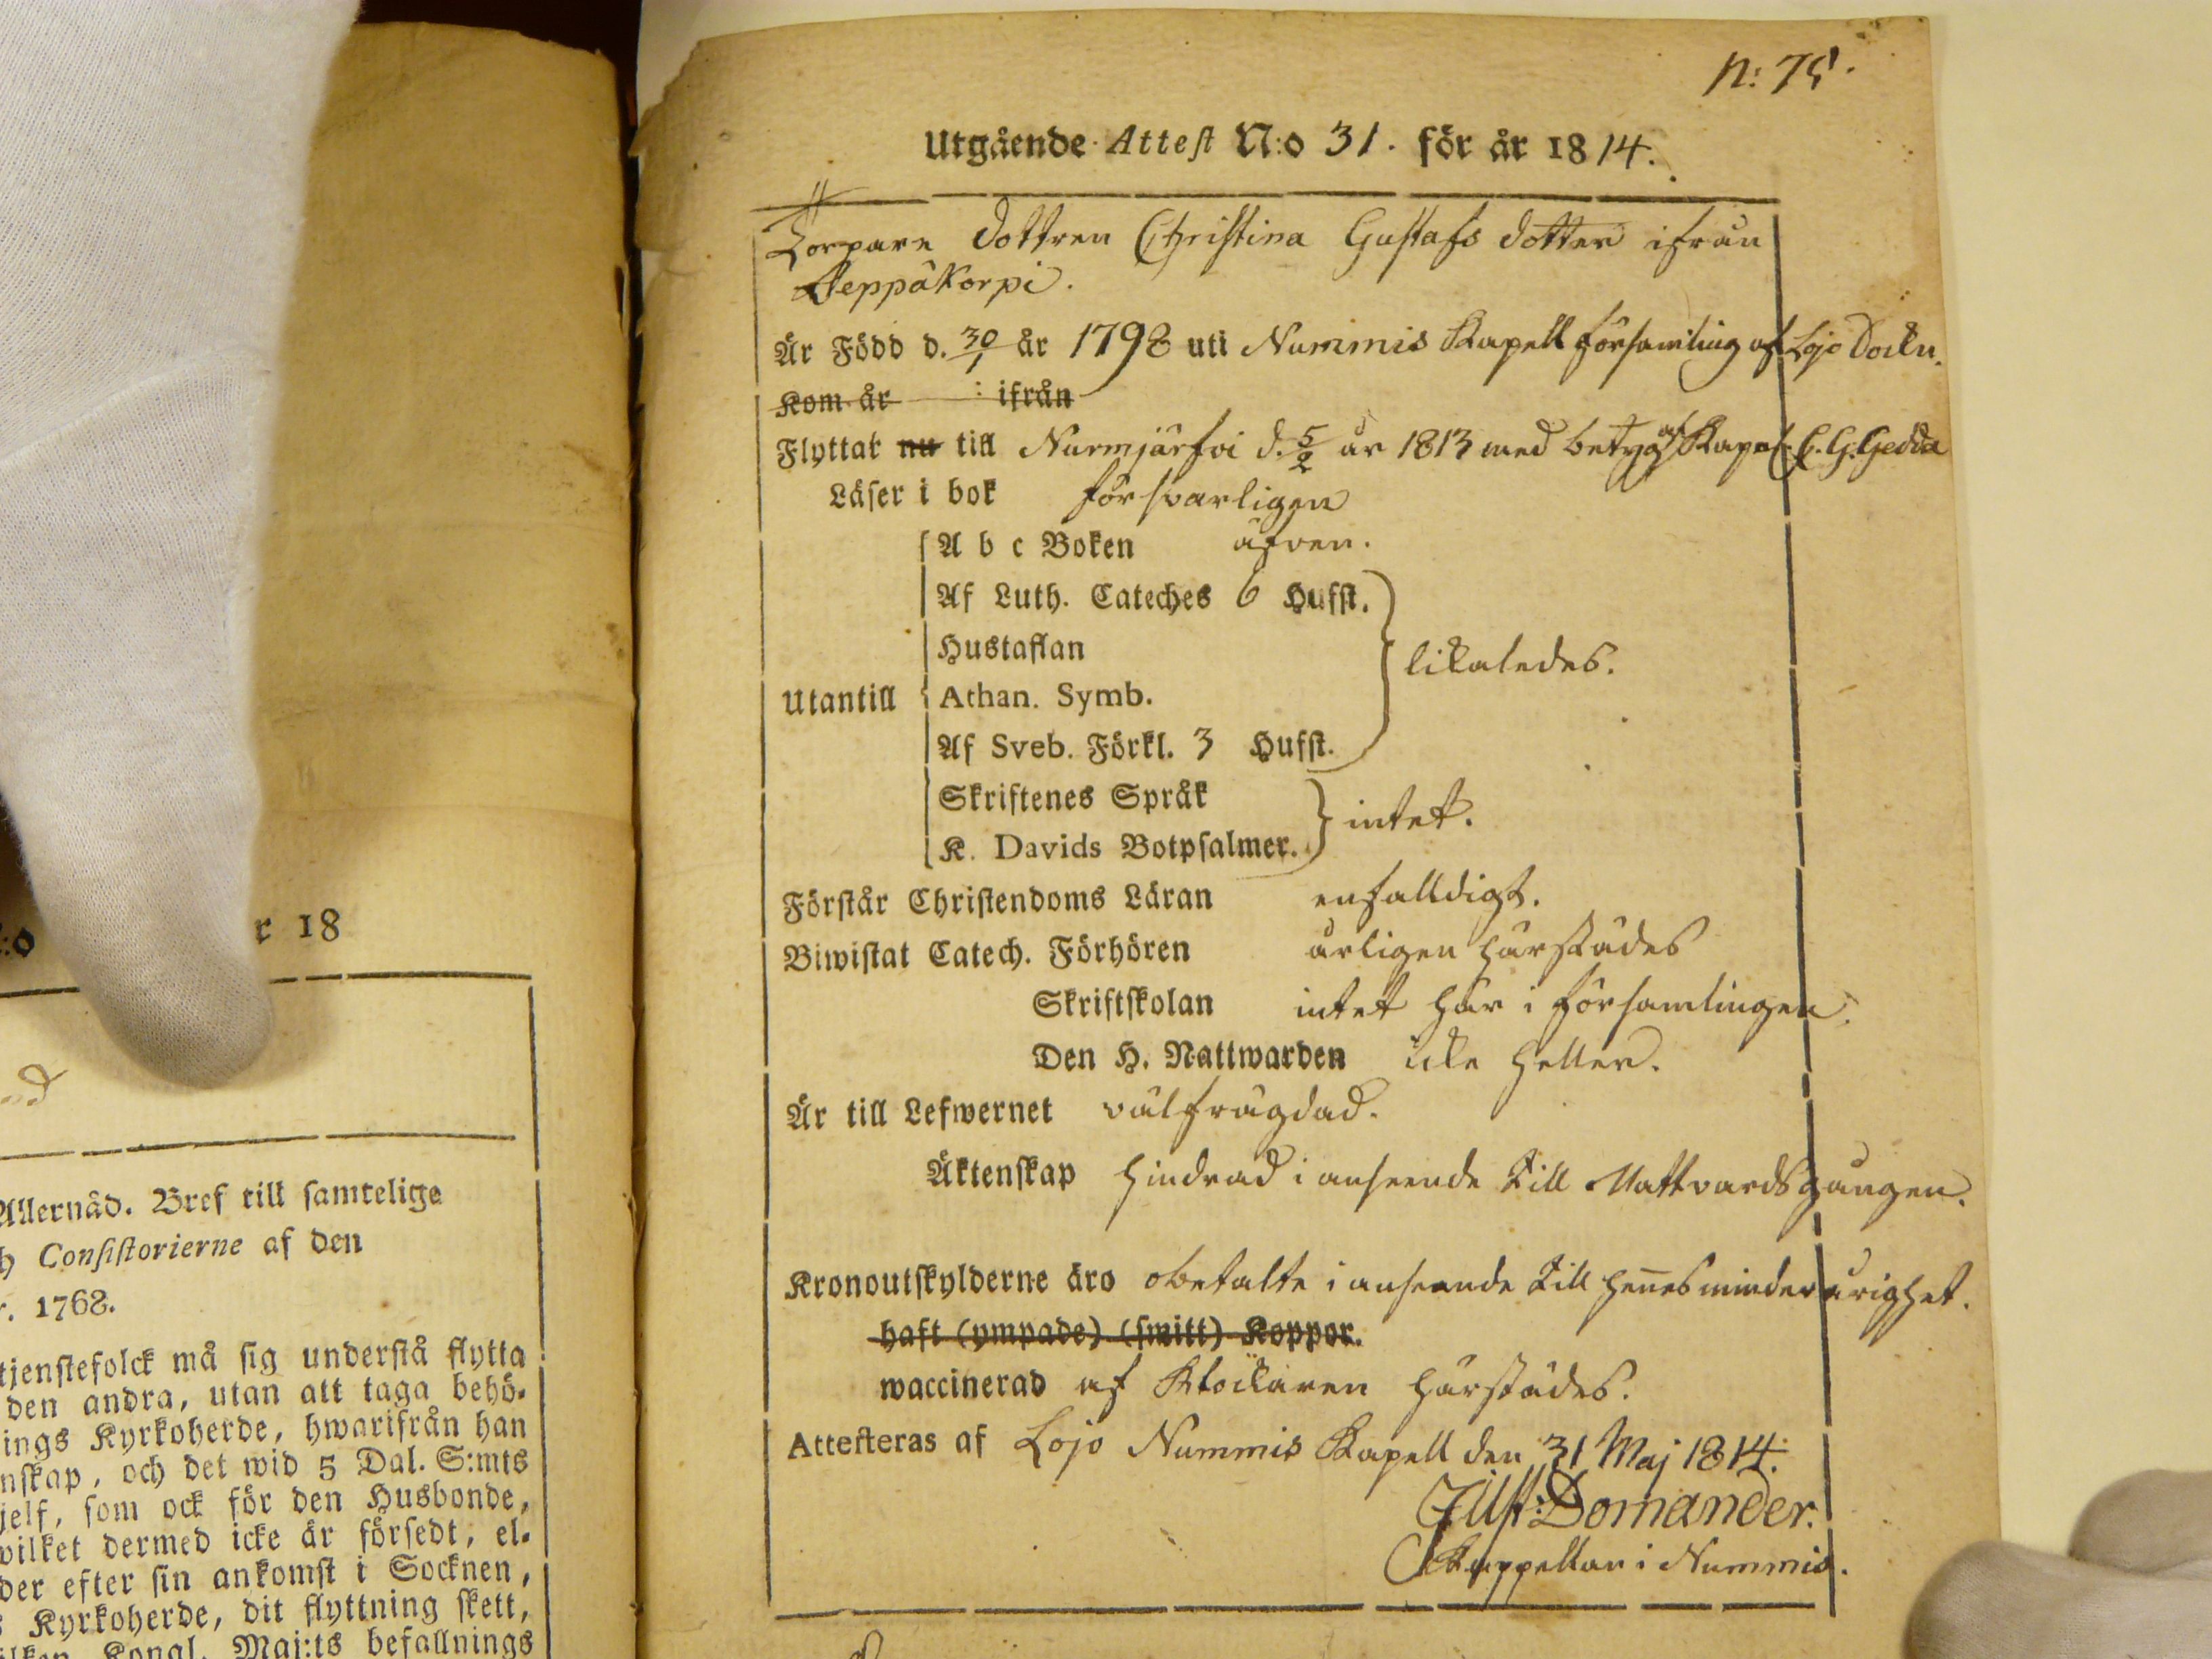 :o r 18
Allernåd. Bref till samtelige
h Consistorierne af den
r. 1768.
tjenstefolck må sig understå flytta
den andra, utan att taga behö-
ings Kyrkoherde, hwarifrån han
nskap, och det wid 5 Dal. S:mts
jelf, som ock för den Husbonde,
wilket dermed icke är försedt, el-
der efter sin ankomst i Socknen,
s Kyrkoherde, dit flyttning skett,
ilken Kongl. Maj:ts befallnings
N: 75.
Utgående Attest N:o 31. för år 1814.
Torpare dottren Christina Gustafs dotter ifrån
Seppäkorpi.
Är Född d. 30/1 år 1798 uti Nummis Kapell församling af Lojo Sockn.
Kom år : ifrån
Flyttat nu till Nurmjärfvi d. 5/2 år 1813 med betyg af Kapel. C. G. Gedda
Läser i bok försvarligen
A b c Boken äfven.
Af Luth. Cateches 6 Hufst.
Hustaflan
likaledes.
Utantill Athan. Symb.
Af Sveb. Förkl. 3 Hufst.
Skriftenes Språk
intet.
K. Davids Botpsalmer.
Förstår Christendoms Läran enfalldigt.
Biwistat Catech. Förhören årligen härstädes
Skriftskolan intet här i församlingen.
Den H. Nattwarden icke heller.
Är till Lefwernet välfrägdad.
Äktenskap hindrad i anseende till Nattvardsgången.
Kronoutskylderne äro obetalte i anseende till hennes minderårighet.
haft (ympade) (smitt) Koppor.
waccinerad af Klockaren härstädes.
Attesteras af Lojo Nummis Kapell den 31 Maj 1814.
Domander.
Kappellan i Nummis.